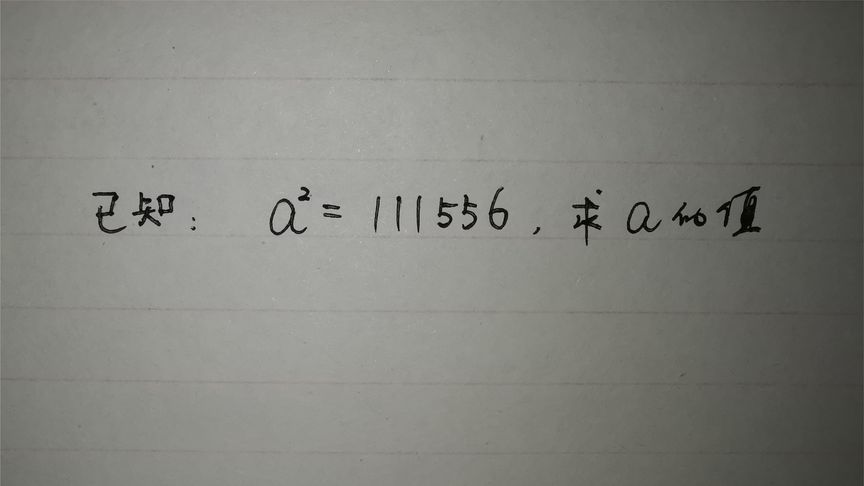 已知： a²= 111556，求a的值